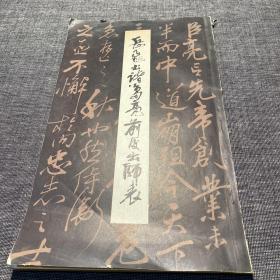 臣亮言先帝創業未
半而中道崩殂今天下
三
岳飛書諸葛亮前後出師表
危
急存亡之秋也然侍衛
之臣不懈於內忠志之士